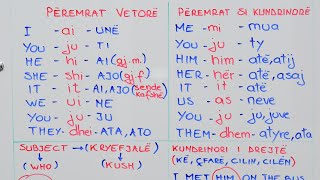 PËREMRAT VETORË
I - ai - UNË
YOU - ju - TI
HE - hi - AI (gj.m.)
SHE - shi - AJO (gj.f)
IT - it - AI, AJO (sende kafshë)
WE - ui - NE
YOU - ju - JU
THEY - dhei - ATA, ATO
SUBJECT → (KRYEFJALË)
(WHO) (KUSH)
PËREMRAT SI KUNDRINORË
ME - mi - mua
YOU - ju - ty
HIM - him - atë, atij
HER - hër - atë, asaj
IT - it - atë
US - as - neve
YOU - ju - ju, juve
THEM - dhem - atyre, ata
KUNDRINORI I DREJTË
(KË, ÇFARË, CILIN, CILËN)
I MET HIM ON THE BUS